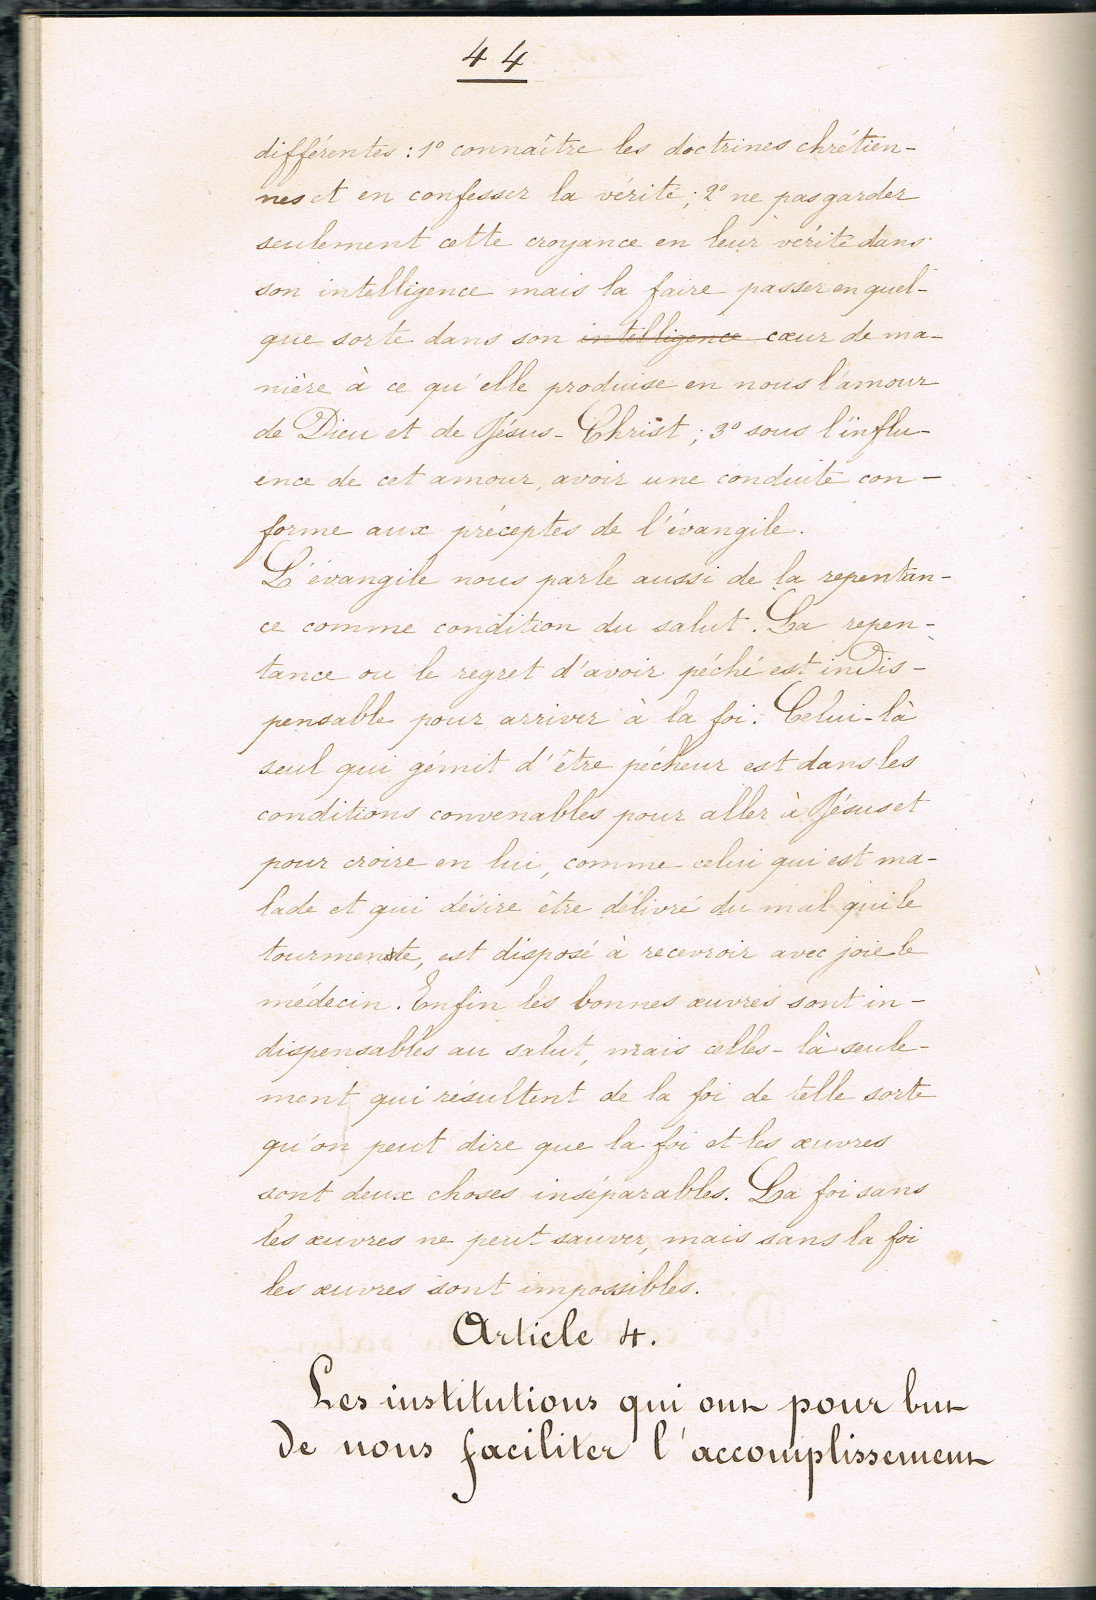 44
différentes : 1° connaître les doctrines chrétien-
nes et en confesser la vérité ; 2° ne pas garder
seulement cette croyance en leur vérité dans
son intelligence mais la faire passer en quel-
que sorte dans son intelligence cœur de ma-
nière à ce qu'elle produise en nous l'amour
de Dieu et de Jésus-Christ ; 3° sous l'influ-
ence de cet amour, avoir une conduite con-
forme aux préceptes de l'évangile.
L'évangile nous parle aussi de la repentan-
ce comme condition du salut. La repen-
tance ou le regret d'avoir péché est indis-
pensable pour arriver à la foi. Celui-là
seul qui gémit d'être pécheur est dans les
conditions convenables pour aller à Jésus et
pour croire en lui, comme celui qui est ma-
lade et qui désire être délivré du mal qui le
tourmente, est disposé à recevoir avec joie le
médecin. Enfin les bonnes œuvres sont in-
dispensables au salut, mais celles-là seule-
ment qui résultent de la foi de telle sorte
qu'on peut dire que la foi et les œuvres
sont deux choses inséparables. La foi sans
les œuvres ne peut sauver, mais sans la foi
les œuvres sont impossibles.
Article 4.
Les institutions qui ont pour but
de nous faciliter l'accomplissement